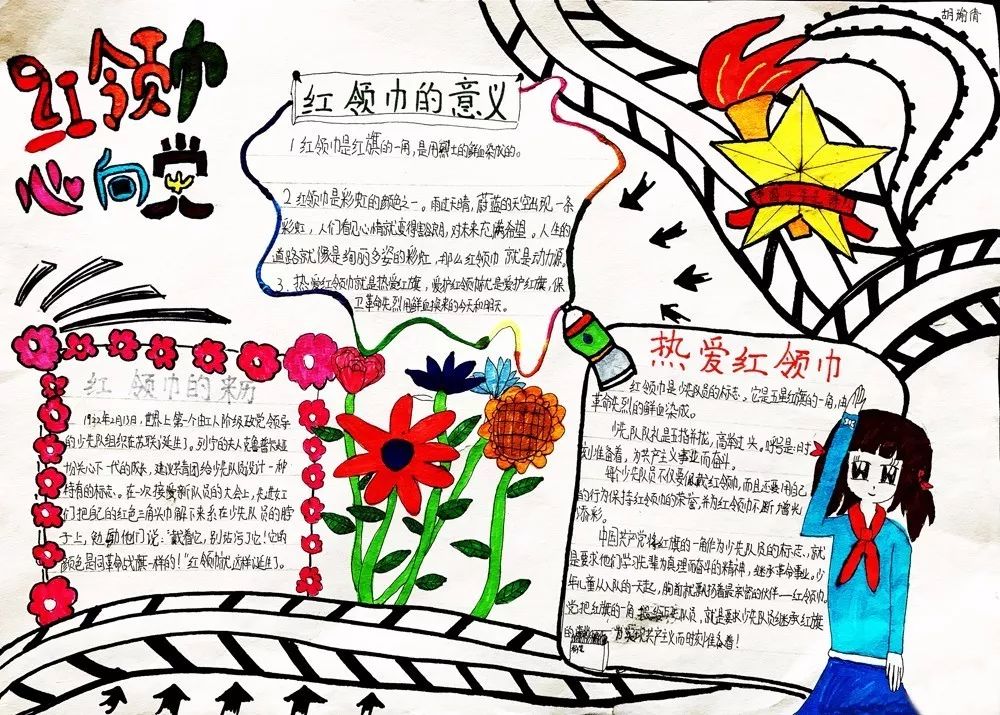 胡瑜倩
红领巾
心向党
红领巾的意义
1 红领巾是红旗的一角,是用烈士的鲜血染成的。
2 红领巾是彩虹的颜色之一。雨过天晴,蔚蓝的天空出现一条
彩虹,人们看见心情就变得明,对未来充满希望。人生的
道路就像是绚丽多姿的彩虹,那么红领巾就是动力源。
3、热爱红领巾就是热爱红旗,爱护红领巾就是爱护红旗,保
卫革命先烈用鲜血换来的今天和明天。
红领巾的来历
1922年2月13日,世界上第一个由工人阶级政党领导
的少先队组织在苏联诞生了。列宁的夫人克鲁普斯
关心下一代的成长,建议共青团给少先队员设计一种
特有的标志。在一次接受新队员的大会上,先进女工
们把自己的红色三角头巾解下来系在少先队员的脖
子上,勉励他们说:"戴着它,别玷污了它!它的
颜色是同革命战旗一样的!"红领巾就这样诞生了。
热爱红领巾
红领巾是少先队员的标志。它是五星红旗的一角,由
革命先烈的鲜血染成。
少先队队礼是五指并拢,高举过头。呼号是:时
刻准备着,为共产主义事业而奋斗。
每个少先队员不仅要佩戴红领巾,而且还要用自己
的行为保持红领巾的荣誉,并为红领巾不断增光
添彩。
中国共产党将红旗的一角作为少先队员的标志,就
是要求他们学习先辈为真理而奋斗的精神,继承革命事业。少
年儿童从入队的一天起,胸前就飘扬着最亲密的伙伴——红领巾,
党把红旗的一角授给队员,就是要求少先队员继承红旗
的——为实现共产主义而时刻准备着!